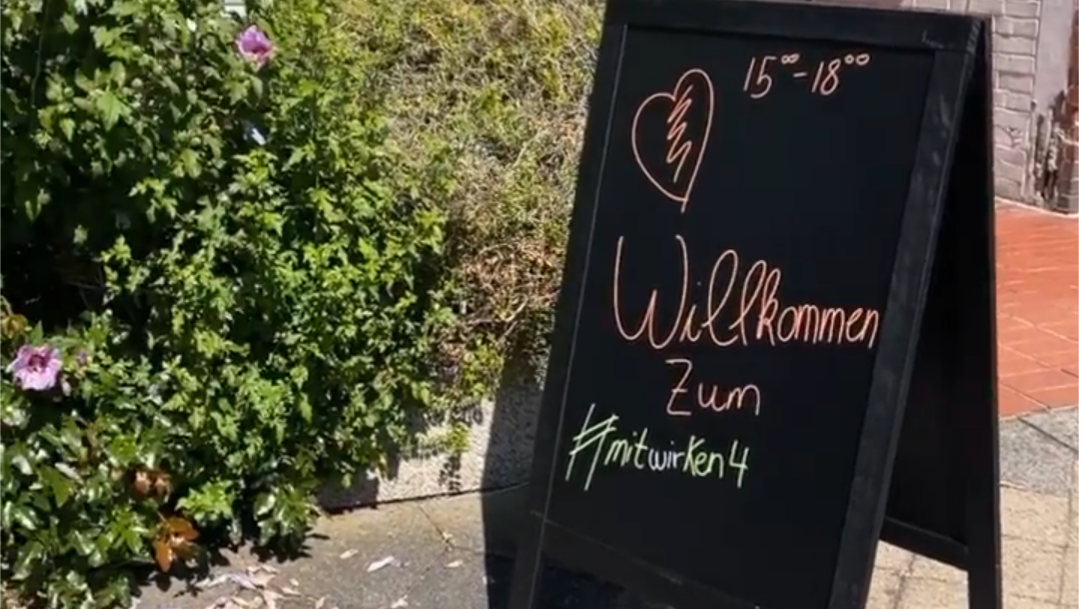 15⁰⁰-18⁰⁰
Willkommen
Zum
#mitwirken4